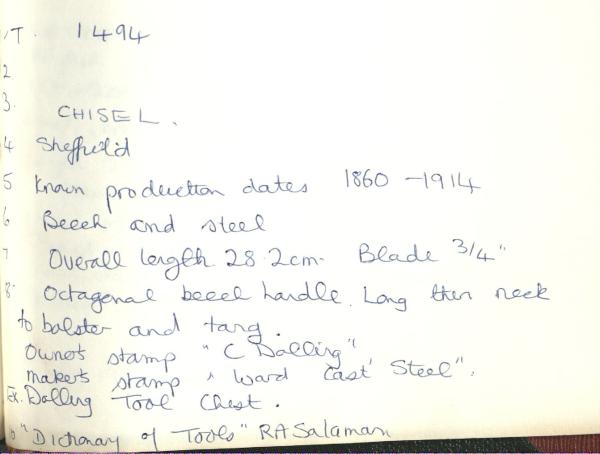 1T. 1494
2
3. CHISEL.
4 Sheffield
5 Known production dates 1860 - 1914
6 Beech and steel
7 Overall length 28.2cm. Blade 3/4"
8. Octagonal beech handle. Long thin neck
to bolster and tang.
Owner's stamp "C Dalling"
maker's stamp "Ward Cast Steel".
Ex. Dalling Tool Chest.
10 "Dictionary of Tools" RA Salaman